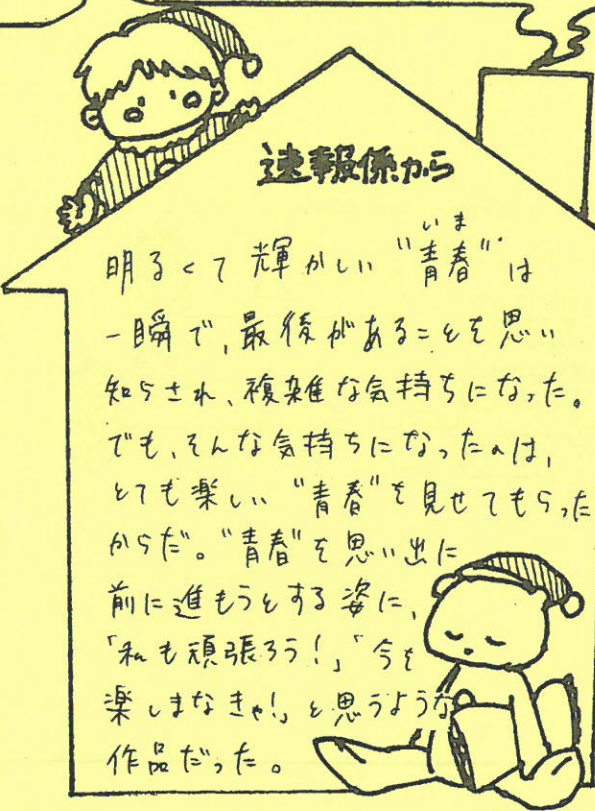 速報係から
いま
明るくて輝かしい"青春"は
一瞬で、最後があることを思い
知らされ、複雑な気持ちになった。
でも、そんな気持ちになったのは、
とても楽しい"青春"を見せてもらった
からだ。"青春"を思い出に
前に進もうとする姿に、
「私も頑張ろう!」「今を
楽しまなきゃ!」と思うような
作品だった。